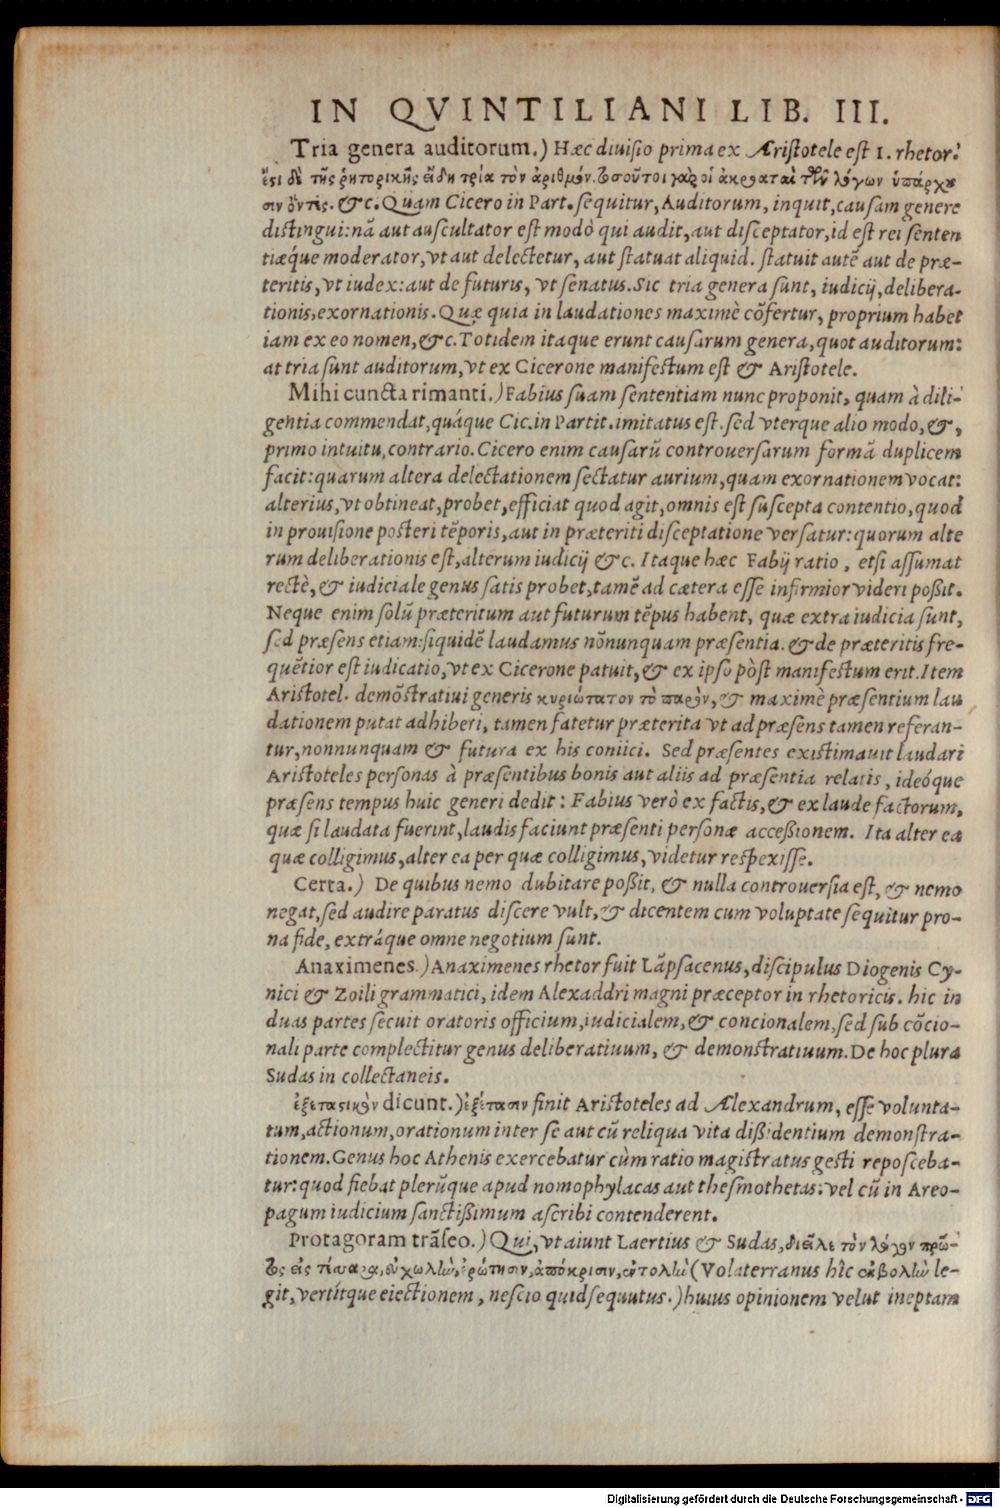 IN QVINTILIANI LIB. III.
Tria genera auditorum.) Hæc diuisio prima ex Aristotele est 1. rhetor:
ἔςι δὲ τῆς ῥητορικῆς εἴδη τρία τὸν ἀριθμόν. τοσοῦτοι γὰρ οἱ ἀκροαταὶ τῶν λόγων ὑπάρχου
σιν ὄντες. &c. Quam Cicero in Part. sequitur, Auditorum, inquit, causam genere
distingui: nã aut auscultator est modò qui audit, aut disceptator, id est rei senten
tiæque moderator, vt aut delectetur, aut statuat aliquid. statuit autẽ aut de præ-
teritis, vt iudex: aut de futuris, vt senatus. Sic tria genera sunt, iudicij, delibera-
tionis, exornationis. Quæ quia in laudationes maximè cõfertur, proprium habet
iam ex eo nomen, &c. Totidem itaque erunt causarum genera, quot auditorum:
at tria sunt auditorum, vt ex Cicerone manifestum est & Aristotele.
Mihi cuncta rimanti.) Fabius suam sententiam nunc proponit, quam à dili-
gentia commendat, quáque Cic. in Partit. imitatus est. sed vterque alio modo, &,
primo intuitu, contrario. Cicero enim causarũ controuersarum formã duplicem
facit: quarum altera delectationem sectatur aurium, quam exornationem vocat:
alterius, vt obtineat, probet, efficiat quod agit, omnis est suscepta contentio, quod
in prouisione posteri tẽporis, aut in præteriti disceptatione versatur: quorum alte
rum deliberationis est, alterum iudicij &c. Itaque hæc Fabij ratio, etsi assumat
rectè, & iudiciale genus satis probet, tamẽ ad cætera esse infirmior videri poßit.
Neque enim solũ præteritum aut futurum tẽpus habent, quæ extra iudicia sunt,
sed præsens etiam: siquidẽ laudamus nõnunquam præsentia. & de præteritis fre-
quẽtior est iudicatio, vt ex Cicerone patuit, & ex ipso pòst manifestum erit. Item
Aristotel. demõstratiui generis κυριώτατον τὸ παρὸν, & maximè præsentium lau
dationem putat adhiberi, tamen fatetur præterita vt ad præsens tamen referan-
tur, nonnunquam & futura ex his coniici. Sed præsentes existimauit laudari
Aristoteles personas à præsentibus bonis aut aliis ad præsentia relatis, ideóque
præsens tempus huic generi dedit: Fabius verò ex factis, & ex laude factorum,
quæ si laudata fuerint, laudis faciunt præsenti personæ acceßionem. Ita alter ea
quæ colligimus, alter ea per quæ colligimus, videtur respexisse.
Certa.) De quibus nemo dubitare poßit, & nulla controuersia est, & nemo
negat, sed audire paratus discere vult, & dicentem cum voluptate sequitur pro-
na fide, extráque omne negotium sunt.
Anaximenes.) Anaximenes rhetor fuit Lãpsacenus, discipulus Diogenis Cy-
nici & Zoili grammatici, idem Alexaddri magni præceptor in rhetoricis. hic in
duas partes secuit oratoris officium, iudicialem, & concionalem, sed sub cõcio-
nali parte complectitur genus deliberatiuum, & demonstratiuum. De hoc plura
Sudas in collectaneis.
ἐξεταςικὸν dicunt.) ἐξέτασιν finit Aristoteles ad Alexandrum, esse volunta-
tum, actionum, orationum inter se aut cũ reliqua vita dißidentium demonstra-
tionem. Genus hoc Athenis exercebatur cùm ratio magistratus gesti reposceba-
tur: quod fiebat plerũque apud nomophylacas aut thesmothetas: vel cũ in Areo-
pagum iudicium sanctißimum ascribi contenderent.
Protagoram trãseo.) Qui, vt aiunt Laertius & Sudas, διεῖλε τὸν λόγον πρῶ-
τος εἰς τέσσαρα, εὐχωλὴν, ἐρώτησιν, ἀπόκρισιν, ἐντολὴν (Volaterranus hîc ἐκβολὴν le-
git, vertítque eiectionem, nescio quid sequutus.) huius opinionem velut ineptam
Digitalisierung gefördert durch die Deutsche Forschungsgemeinschaft - DFG